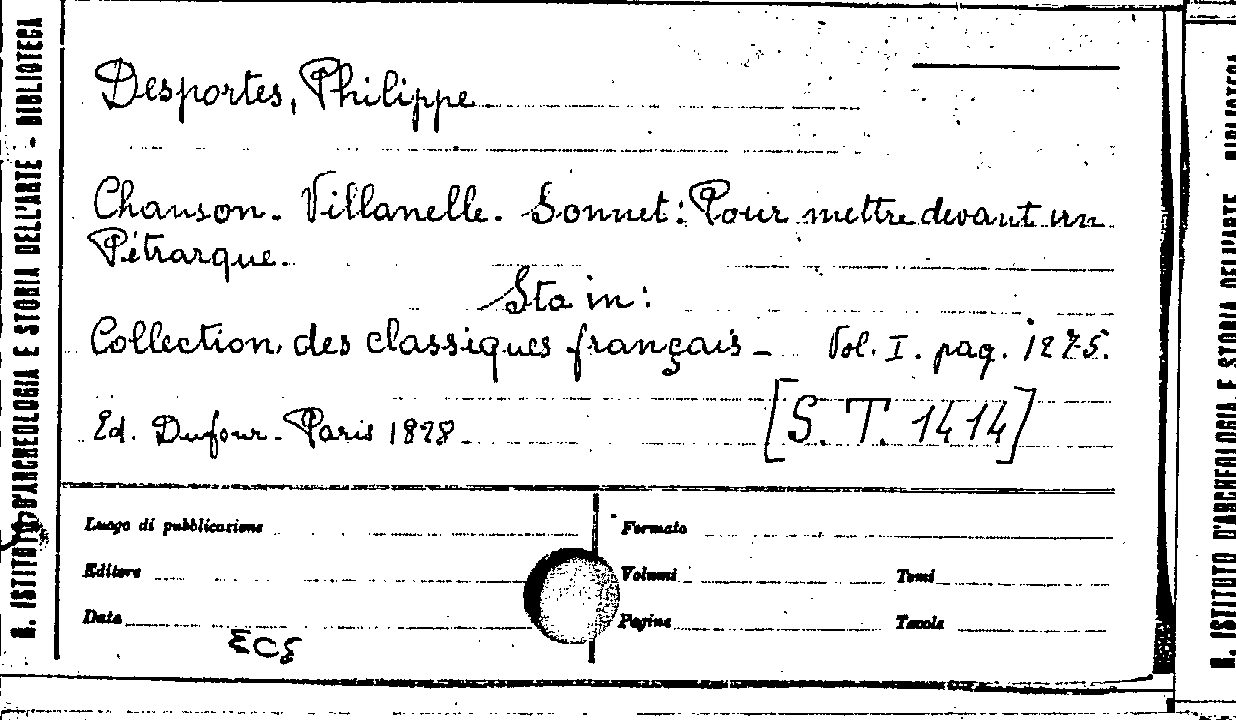 R. ISTITUTO D'ARCHEOLOGIA E STORIA DELL'ARTE - BIBLIOTECA
Desportes, Philippe
Chanson. Villanelle. Sonnet: Pour mettre devant un
Pétrarque.
Sta in:
Collection des classiques français - Vol. I. pag. 1275.
Ed. Dufour - Paris 1828 [S. T. 1414]
Luogo di pubblicazione Formato
Editore Volumi Tomi
Data Pagine Tavole
R. ISTITUTO D'ARCHEOLOGIA E STORIA DELL'ARTE BIBLIOTECA